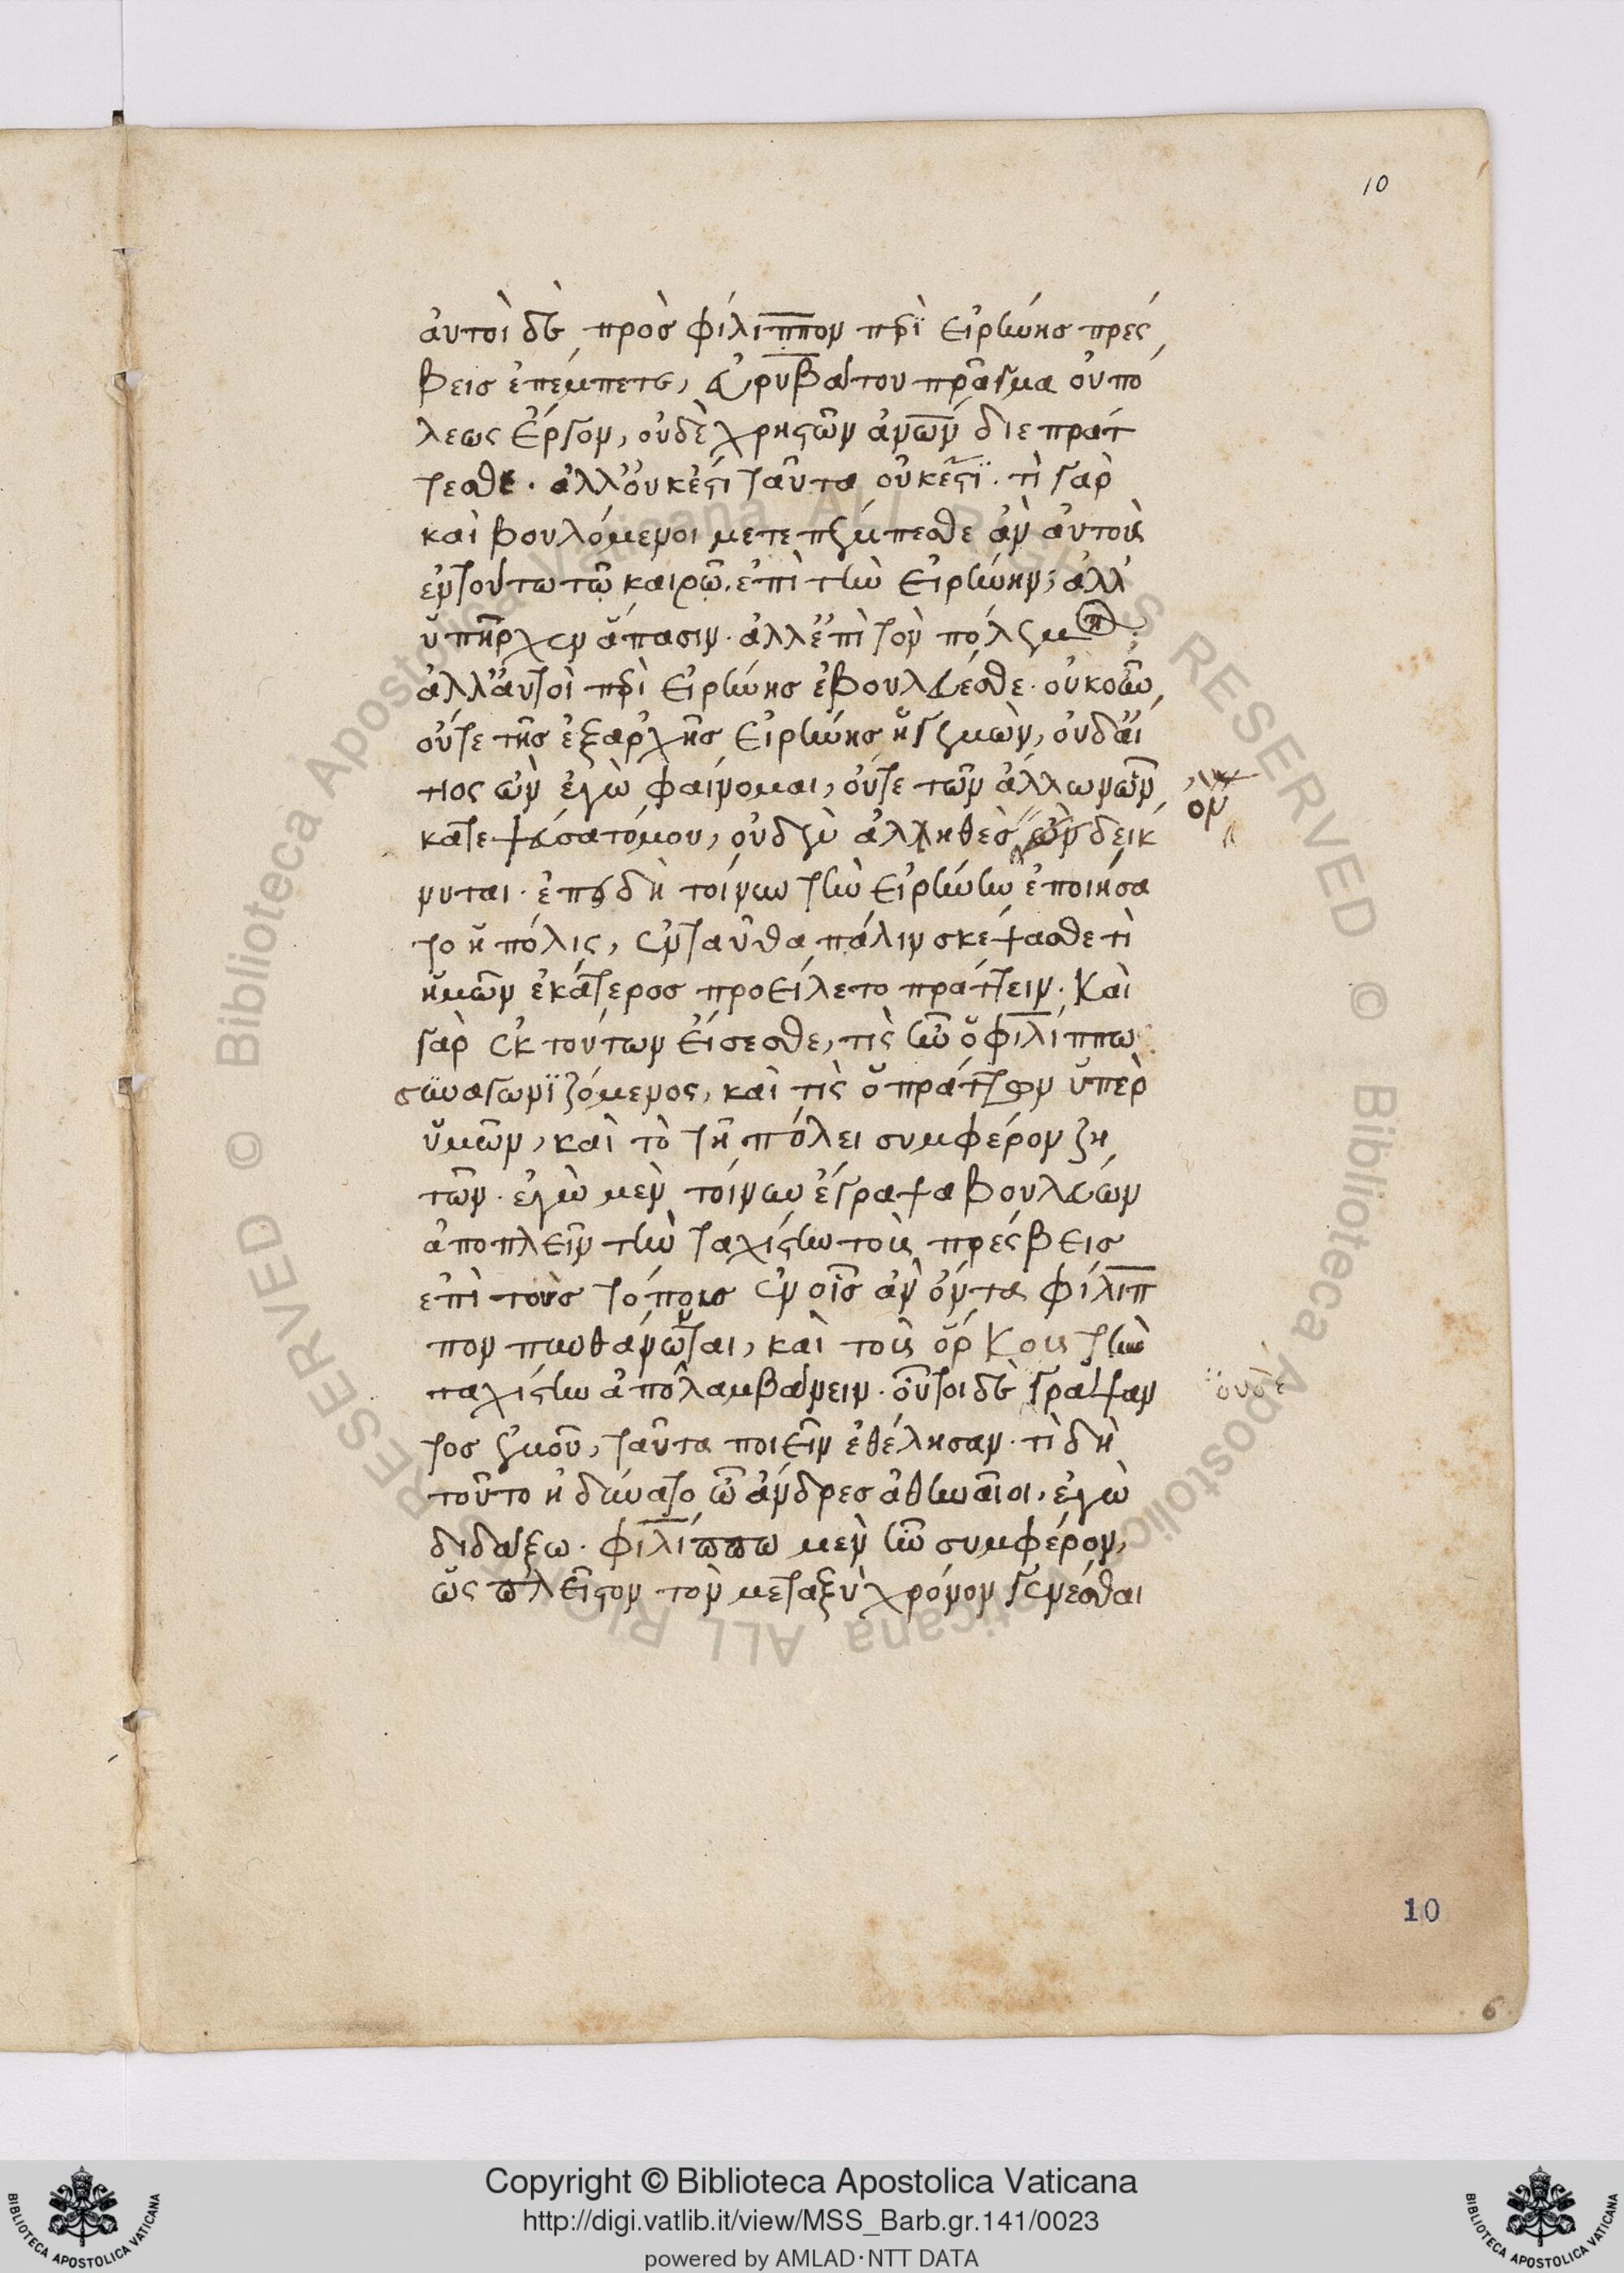 10
ἀυτοὶ δὲ πρὸσ φίλιππον περὶ εἰρήνησ πρέσ
βεισ ἐπέμπετε, ἐυρυβάτου πρᾶγμα οὐ πό
λεως ἔργον, οὐδὲ χρηστῶν ἀνῶν διεπράτ
τεσθε. ἀλλ' ὀυκ ἔστι ταῦτα οὐκ ἔστϊ. τὶ γὰρ
καὶ βουλόμενοι μετεπέμπεσθε ἂν ἀυτοὺς
ἐν τούτω τῶ καιρῶ. ἐπὶ τὴν εἰρήνην; ἀλλ'
ὑπῆρχεν ἅπασιν. ἀλλ' ἐπὶ τὸν πόλεμον;
ἀλλ' ἀυτοὶ περὶ εἰρήνησ ἐβουλεύεσθε. οὐκοῦν
οὔτε τῆσ ἐξαρχῆσ εἰρήνησ ἡγεμὼν, οὐδ' ἄι
τιος ὢν ἐγὼ φαίνομαι, οὔτε τῶν ἄλλων ὧν
ὸν
κατεψεύσατό μου, οὐδὲν ἀληθὲσ ὂν δείκ
νυται. ἐπειδὴ τοίνυν τὴν εἰρήνην ἐποιήσα
το ἡ πόλις, ἐνταῦθα πάλιν σκέψασθε τὶ
ἡμῶν ἑκάτεροσ προείλετο πράττειν. Καὶ
γὰρ ἐκ τούτων εἴσεσθε, τὶς ἦν ὁ φιλίππω
συναγωνϊζόμενος, καὶ τὶς ὁ πράττων ὑπὲρ
ὑμῶν, καὶ τὸ τῆ πόλει συμφέρον ζη
τῶν. ἐγὼ μὲν τοίνυν ἔγραψα βουλεύων
ἀποπλεῖν τὴν ταχίστην τοὺς πρέσβεισ
ἐπὶ τοὺσ τόπουσ ἐν οἷσ ἂν ὄντα φίλιπ
πον πυνθάνωνται, καὶ τοὺς ὅρκους τὴν
ταχίστην ἀπολαμβάνειν. οὗτοι δὲ γράψαν
ὀυδὲ
τοσ ἐμοῦ, ταῦτα ποιεῖν ἐθέλησαν. τὶ δὴ
τοῦτο ἠδύνατο ὦ ἄνδρεσ ἀθηναῖοι, ἐγὼ
διδάξω. φιλίππω μὲν ἦν συμφέρον,
ὡς πλεῖστον τὸν μεταξὺ χρόνον γενέσθαι
10
6
© Biblioteca Apostolica Vaticana ALL RIGHTS RESERVED © Biblioteca Apostolica Vaticana ALL RIGHTS RESERVED
BIBLIOTECA APOSTOLICA VATICANA
Copyright © Biblioteca Apostolica Vaticana
http://digi.vatlib.it/view/MSS_Barb.gr.141/0023
powered by AMLAD·NTT DATA
BIBLIOTECA APOSTOLICA VATICANA